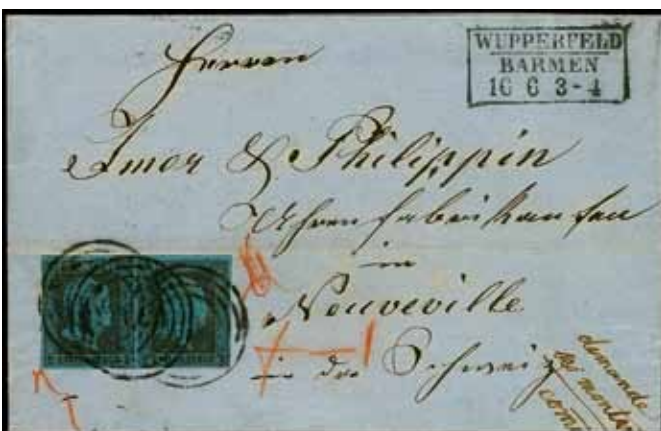 WUPPERFELD
BARMEN
16 6 3-4
Herren
Amor & Philippin
Uhrenfabrikanten
in
Neuveville
in der Schweiz
demande
montre